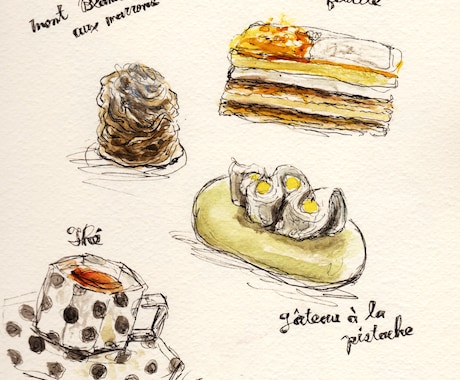 mont Blanc
aux marrons
feuille
Thé
gâteau à la
pistache